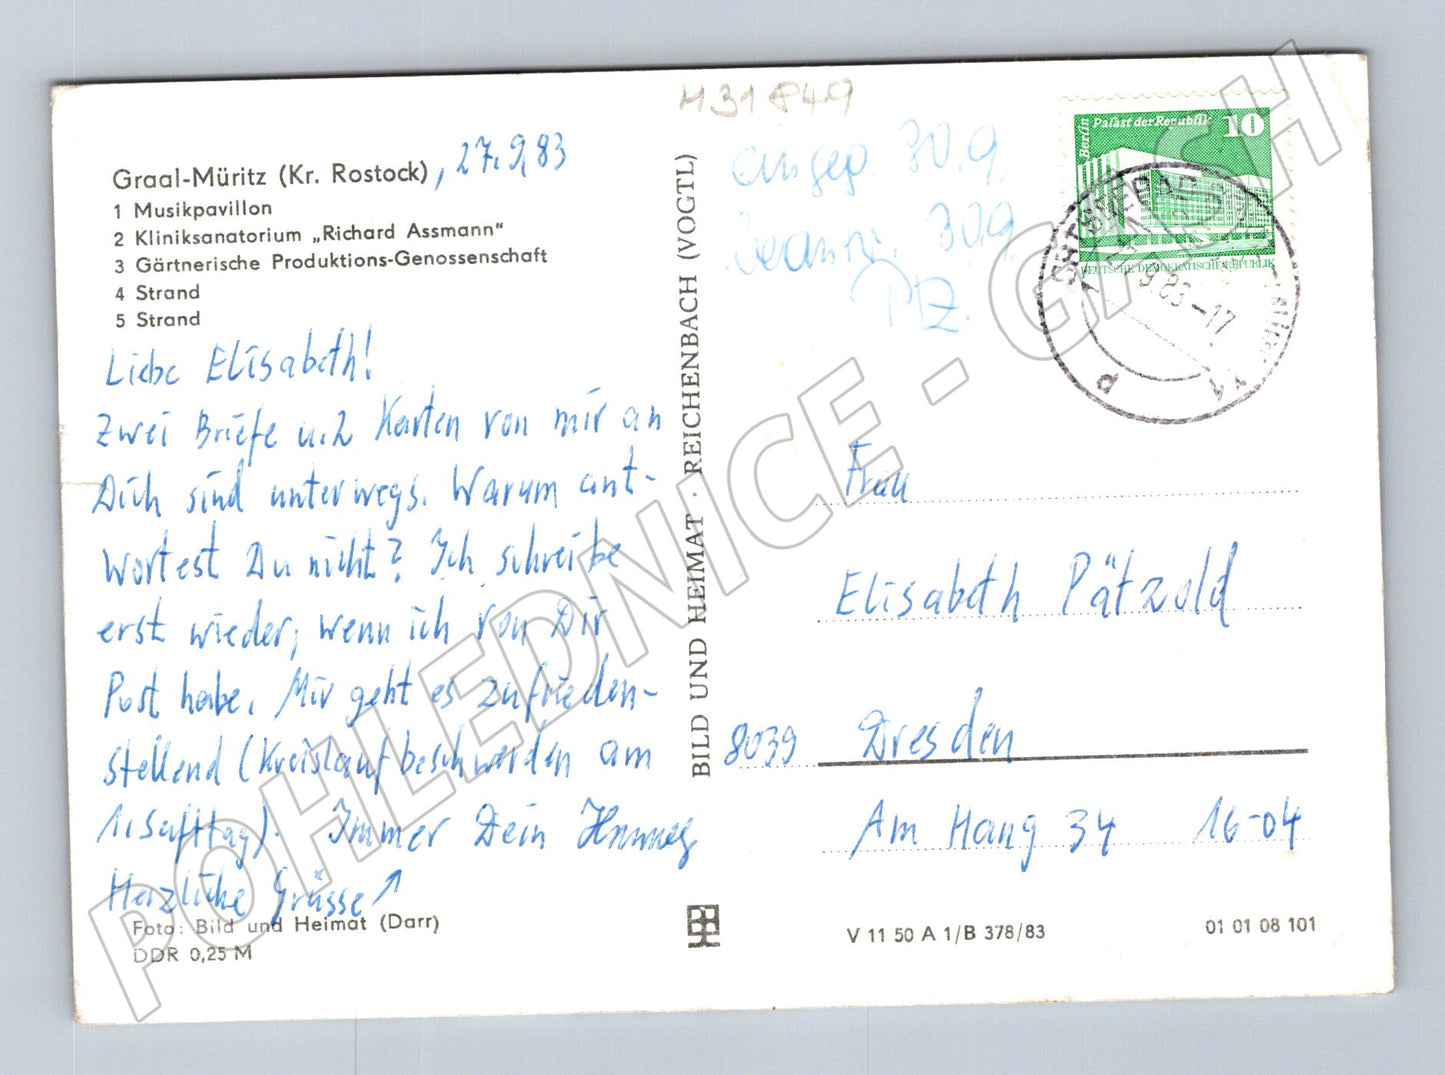 M31849
Graal-Müritz (Kr. Rostock), 27.9.83
1 Musikpavillon
2 Kliniksanatorium „Richard Assmann"
3 Gärtnerische Produktions-Genossenschaft
4 Strand
5 Strand
Liebe Elisabeth!
Zwei Briefe u. 2 Karten von mir an
Dich sind unterwegs. Warum ant-
wortest Du nicht? Ich schreibe
erst wieder, wenn ich von Dir
Post habe. Mir geht es zufrieden-
stellend (Kreislaufbeschwerden am
1. Safttag). Immer Dein
Herzliche Grüsse ↗
Foto: Bild und Heimat (Darr)
DDR 0,25 M
BILD UND HEIMAT · REICHENBACH (VOGTL)
eingeg. 30.9.
beantw. 30.9.
PZ.
Berlin Palast der Republik 10
DEUTSCHE DEMOKRATISCHE REPUBLIK
9.83-17
Frau
Elisabeth Pätzold
8039 Dresden
Am Hang 34 16-04
V 11 50 A 1/B 378/83
01 01 08 101
POHLEDNICE - GASH